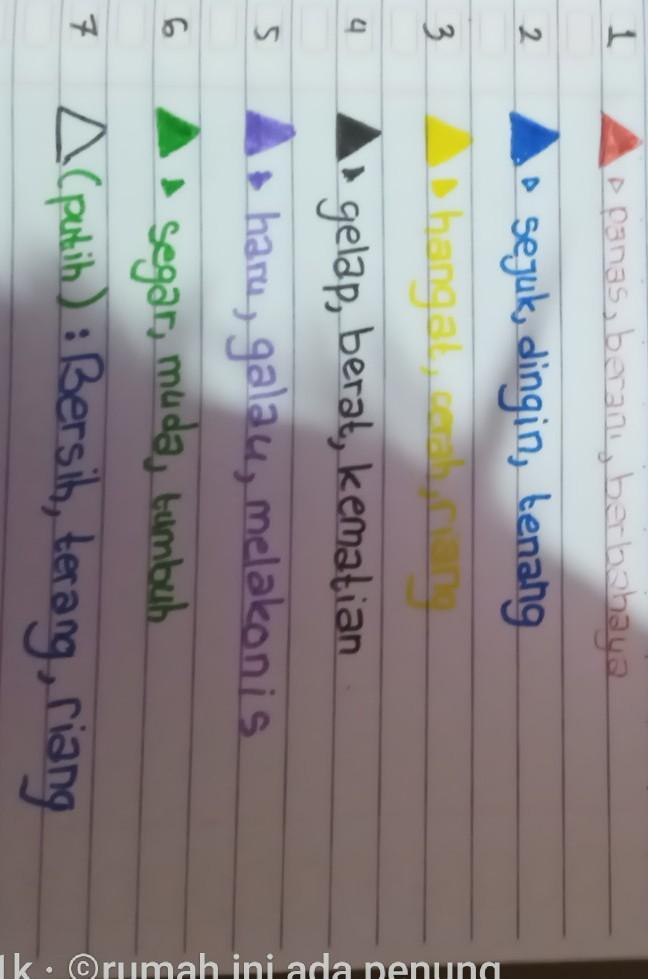 1 panas, berani, berbahaya
2 sejuk, dingin, tenang
3 hangat, cerah, riang
4 gelap, berat, kematian
5 haru, galau, melakonis
6 segar, muda, tumbuh
7 (putih) : Bersih, terang, riang
1k · ©rumah ini ada penung